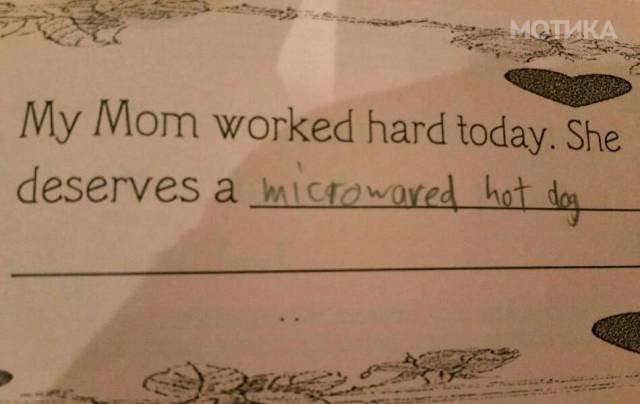 МОТИКА
My Mom worked hard today. She
deserves a microwaved hot dog